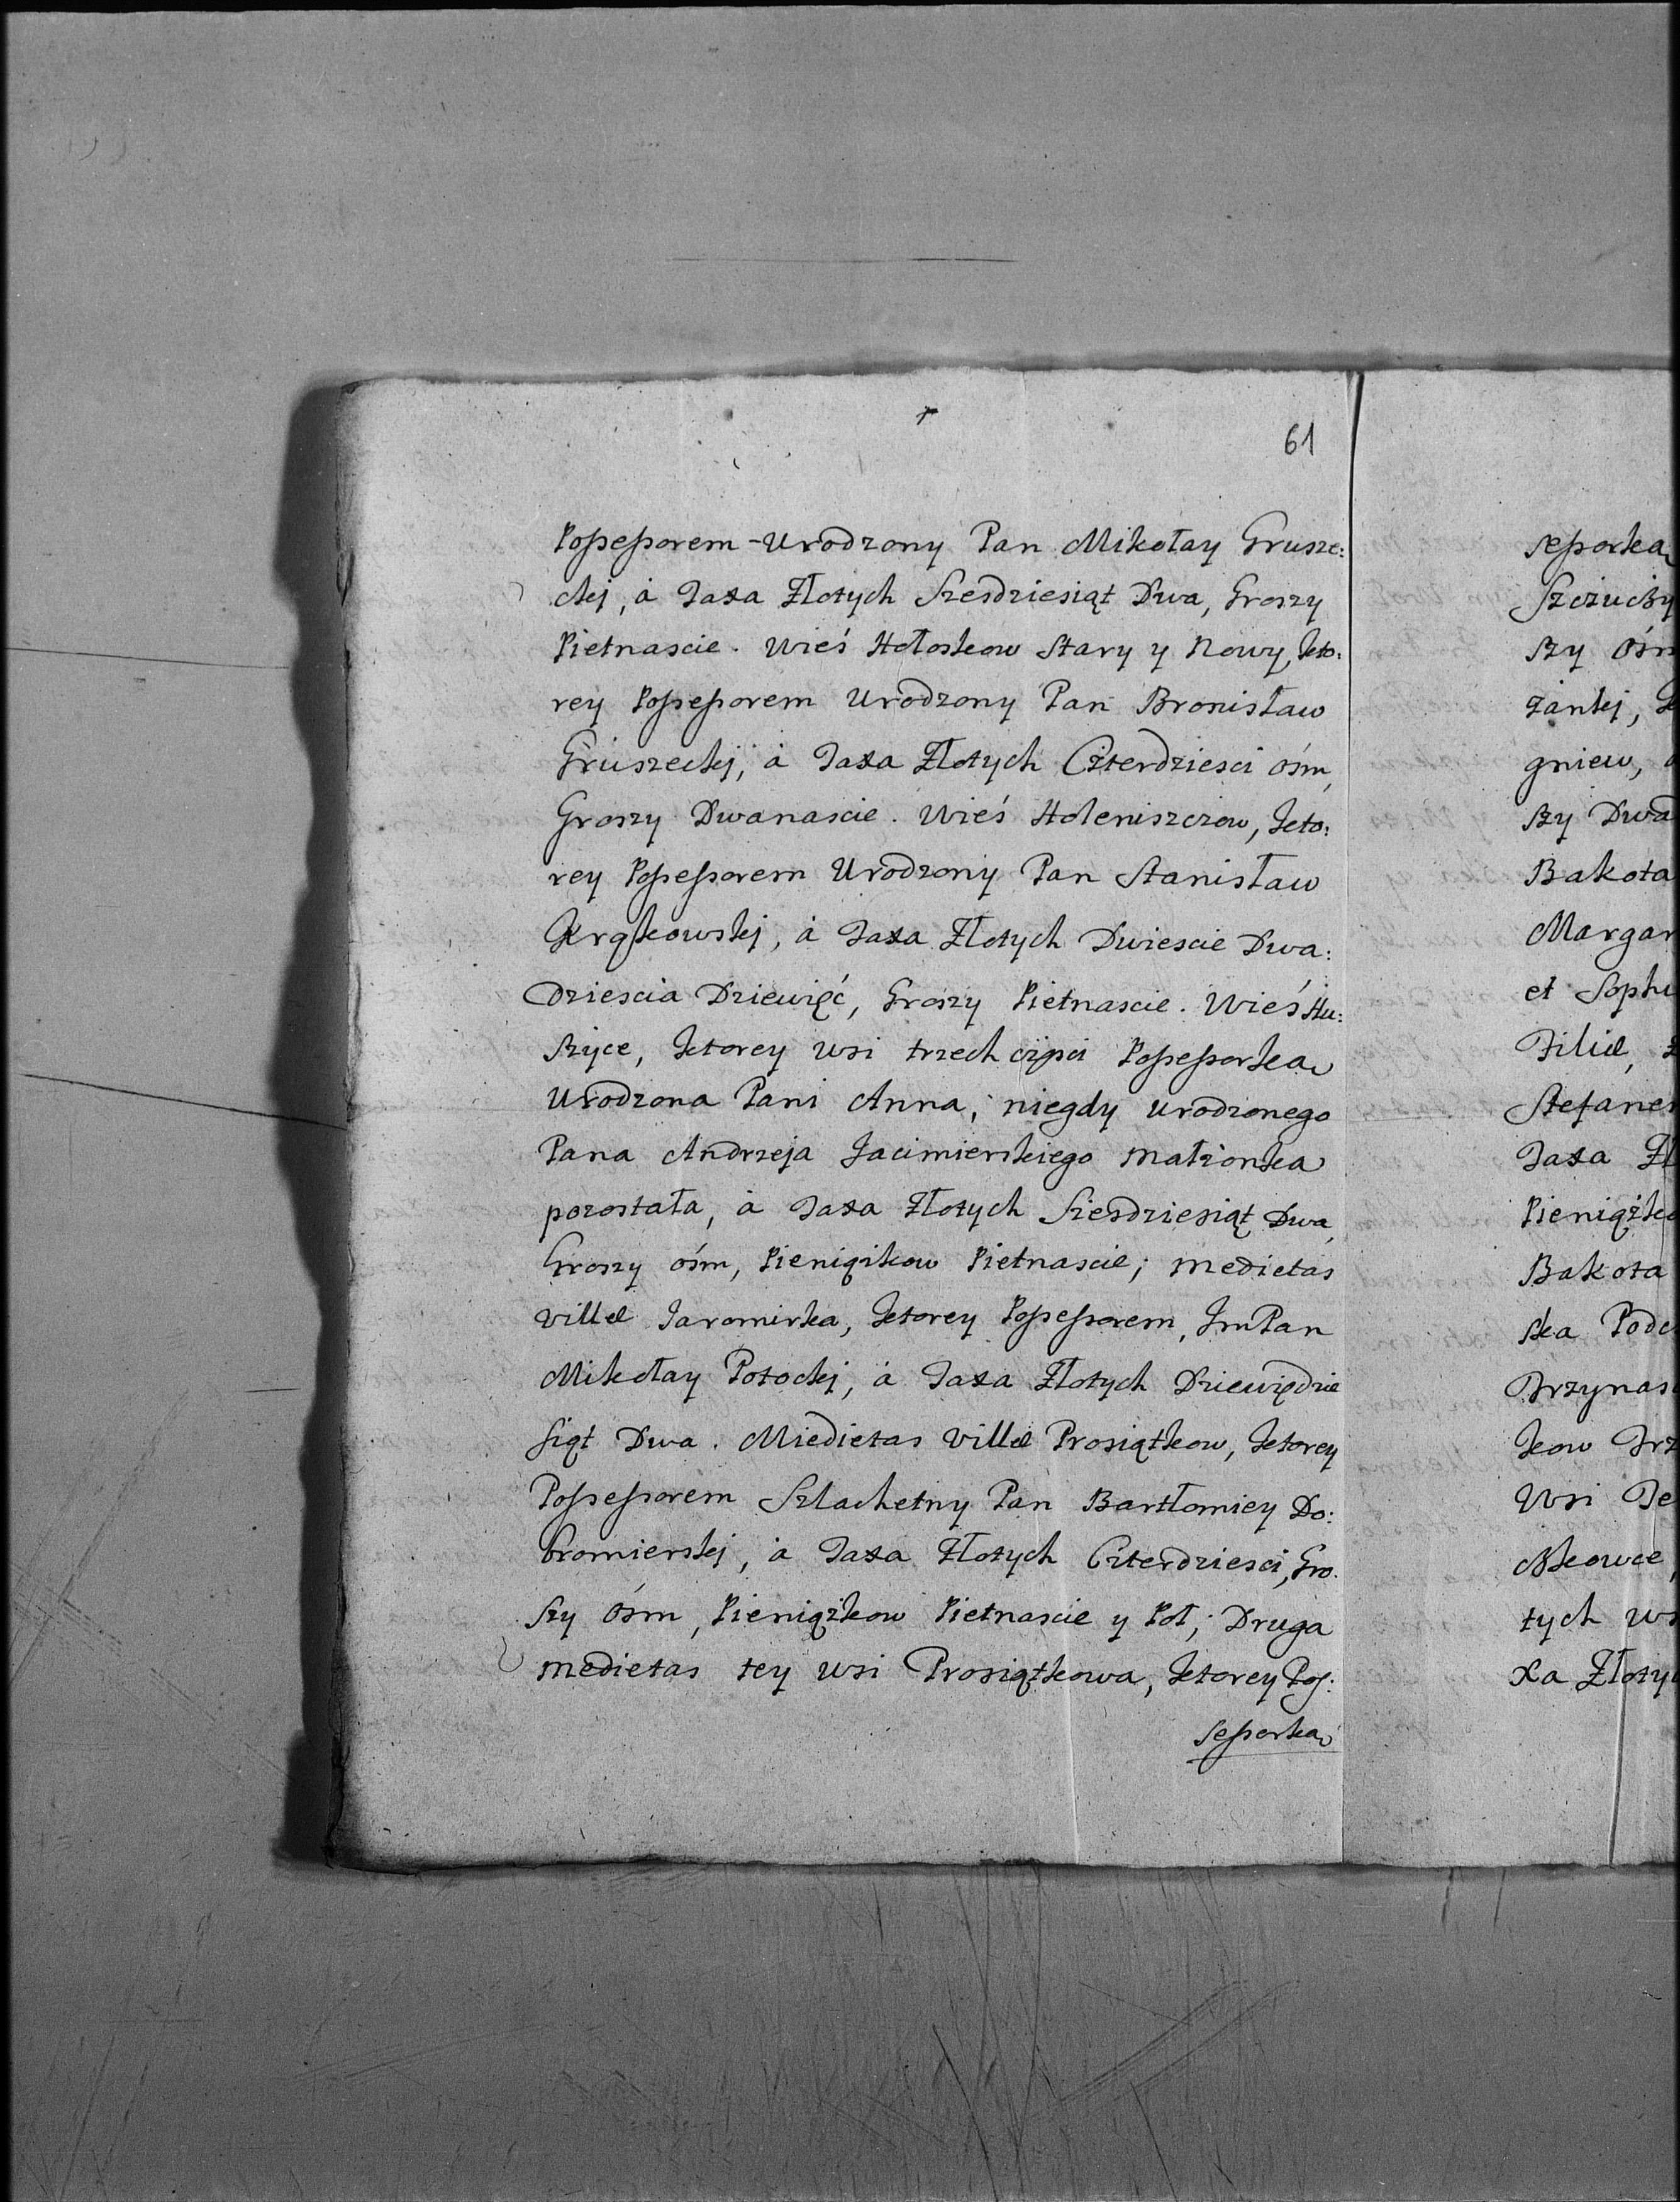 61
Possessorem Urodzony Pan Mikołay Grusze:
ckij, á Taxa Złotych Szesdziesiąt Dwa, Groszy
Pietnascie. Wieś Hołoskow Stary y Nowy, kto:
rey Possessorem Urodzony Pan Bronisław
Gruszeckij, á Taxa Złotych Czterdziesci ośm,
Groszy Dwanascie. Wieś Holeniszczow, kto:
rey Possessorem Urodzony Pan Stanisław
Krąkowskij, á Taxa Złotych Dwiescie Dwa:
dziescia Dziewięć, Groszy Pietnascie. Wieś Hu:
szyce, ktorey wsi trzech części Possessorka
Urodzona Pani Anna, niegdy urodzonego
Pana Andrzeja Jacimierskiego małżonka
pozostała, á Taxa Złotych Szesdziesiąt Dwa,
Groszy ośm, Pieniążkow Pietnascie; medietas
villæ Jaromirka, ktorey Possessorem, Jm Pan
Mikołay Potockij, á Taxa Złotych Dziewiędzie
siąt Dwa. Miedietas villæ Prosiątkow, ktorey
Possessorem Szlachetny Pan Bartłomiey Do:
bromierskij, á Taxa Złotych Czterdziesci, Gro:
szy ośm, Pieniążkow Pietnascie y Poł; Druga
medietas tey wsi Prosiątkowa, ktorey Pos:
sessorka
sessorka
Szczuczy
szy ośm
żankij,
gniew,
szy Dwa
Bakota
Margar
et Sophi
Filiæ,
Stefanes
Taxa Zł
Pieniążko
Bakota
ska Pode
Trzynas
kow Trz
Wsi Te
ckowce,
tych ws
xa Złotyc